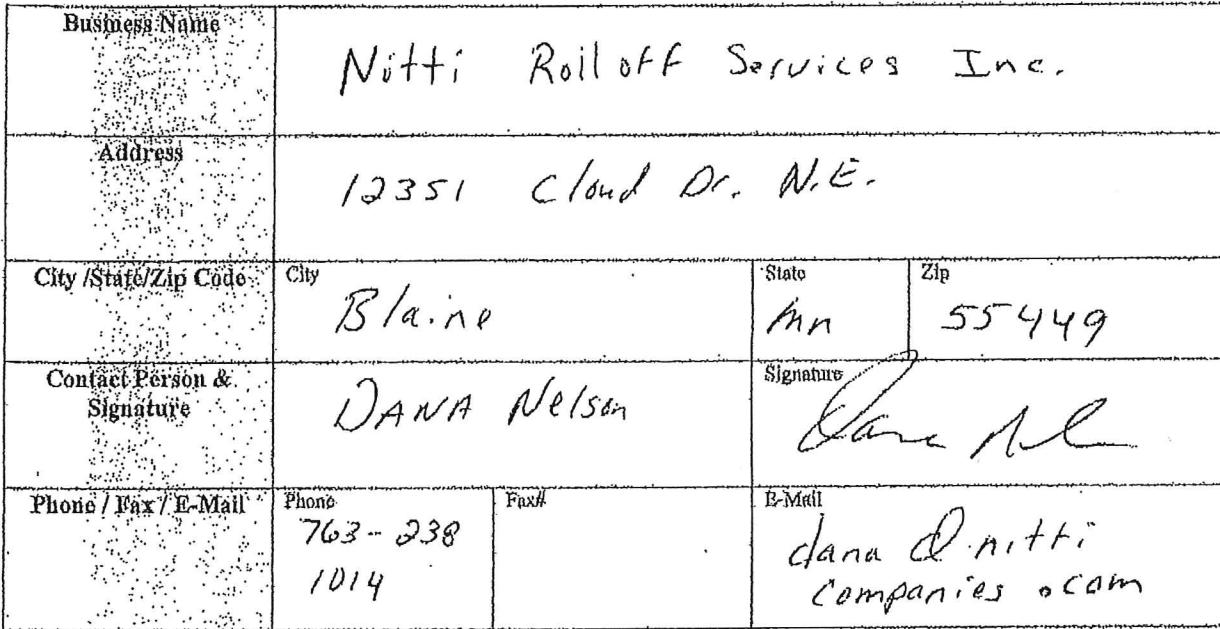 Business Name
Nitti Rolloff Services Inc.
Address
12351 Cloud Dr. N.E.
City /State/Zip Code
City
Blaine
State
Mn
Zip
55449
Contact Person &
Signature
DANA Nelson
Signature
Phone / Fax / E-Mail
Phone
763-238
1014
Fax#
E-Mail
dana @ nitti
companies .com